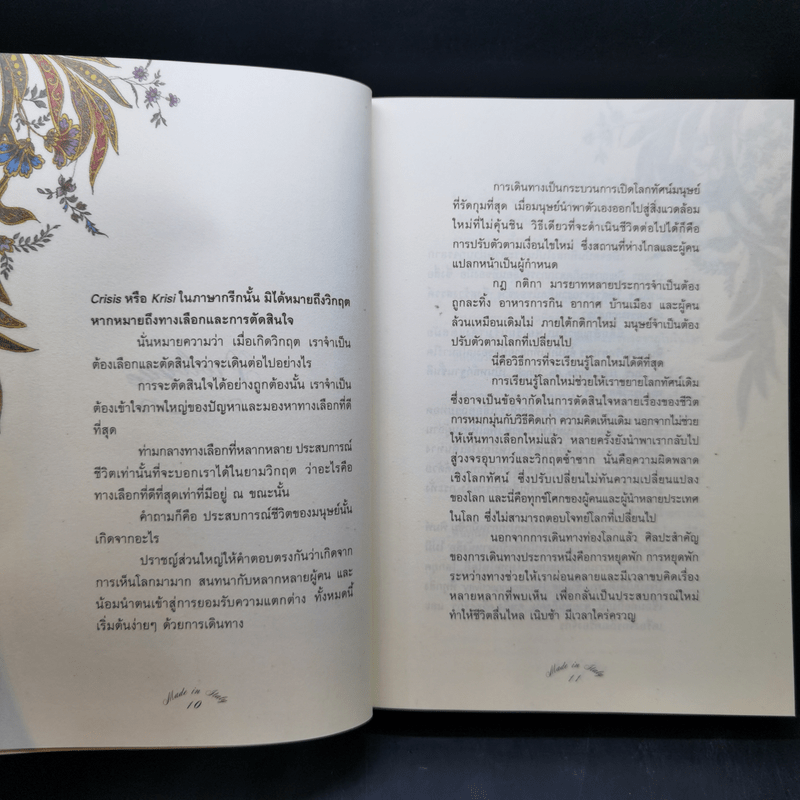 Crisis หรือ Krisi ในภาษากรีกนั้น มิได้หมายถึงวิกฤต
หากหมายถึงทางเลือกและการตัดสินใจ
นั่นหมายความว่า เมื่อเกิดวิกฤต เราจำเป็น
ต้องเลือกและตัดสินใจว่าจะเดินต่อไปอย่างไร
การจะตัดสินใจได้อย่างถูกต้องนั้น เราจำเป็น
ต้องเข้าใจภาพใหญ่ของปัญหาและมองหาทางเลือกที่ดี
ที่สุด
ท่ามกลางทางเลือกที่หลากหลาย ประสบการณ์
ชีวิตเท่านั้นที่จะบอกเราได้ในยามวิกฤต ว่าอะไรคือ
ทางเลือกที่ดีที่สุดเท่าที่มีอยู่ ณ ขณะนั้น
คำถามก็คือ ประสบการณ์ชีวิตของมนุษย์นั้น
เกิดจากอะไร
ปราชญ์ส่วนใหญ่ให้คำตอบตรงกันว่าเกิดจาก
การเห็นโลกมามาก สนทนากับหลากหลายผู้คน และ
น้อมนำตนเข้าสู่การยอมรับความแตกต่าง ทั้งหมดนี้
เริ่มต้นง่ายๆ ด้วยการเดินทาง
Made in Italy
10
การเดินทางเป็นกระบวนการเปิดโลกทัศน์มนุษย์
ที่รัดกุมที่สุด เมื่อมนุษย์นำพาตัวเองออกไปสู่สิ่งแวดล้อม
ใหม่ที่ไม่คุ้นชิน วิธีเดียวที่จะดำเนินชีวิตต่อไปได้ก็คือ
การปรับตัวตามเงื่อนไขใหม่ ซึ่งสถานที่ห่างไกลและผู้คน
แปลกหน้าเป็นผู้กำหนด
กฎ กติกา มารยาทหลายประการจำเป็นต้อง
ถูกละทิ้ง อาหารการกิน อากาศ บ้านเมือง และผู้คน
ล้วนเหมือนเดิมไม่ ภายใต้กติกาใหม่ มนุษย์จำเป็นต้อง
ปรับตัวตามโลกที่เปลี่ยนไป
นี่คือวิธีการที่จะเรียนรู้โลกใหม่ได้ดีที่สุด
การเรียนรู้โลกใหม่ช่วยให้เราขยายโลกทัศน์เดิม
ซึ่งอาจเป็นข้อจำกัดในการตัดสินใจหลายเรื่องของชีวิต
การหมกมุ่นกับวิธีคิดเก่า ความคิดเห็นเดิม นอกจากไม่ช่วย
ให้เห็นทางเลือกใหม่แล้ว หลายครั้งยังนำพาเรากลับไป
สู่วงจรอุบาทว์และวิกฤตซ้ำซาก นั่นคือความผิดพลาด
เชิงโลกทัศน์ ซึ่งปรับไปไม่ทันความเปลี่ยนแปลง
ของโลก และนี่คือทุกข์โศกของผู้คนและผู้นำหลายประเทศ
ในโลก ซึ่งไม่สามารถตอบโจทย์โลกที่เปลี่ยนไป
นอกจากการเดินทางท่องโลกแล้ว ศิลปะสำคัญ
ของการเดินทางประการหนึ่งคือการหยุดพัก การหยุดพัก
ระหว่างทางช่วยให้เราผ่อนคลายและมีเวลาขบคิดเรื่อง
หลายหลากที่พบเห็น เพื่อกลั่นเป็นประสบการณ์ใหม่
ทำให้ชีวิตลื่นไหล เนิบช้า มีเวลาใคร่ครวญ
Made in Italy
11